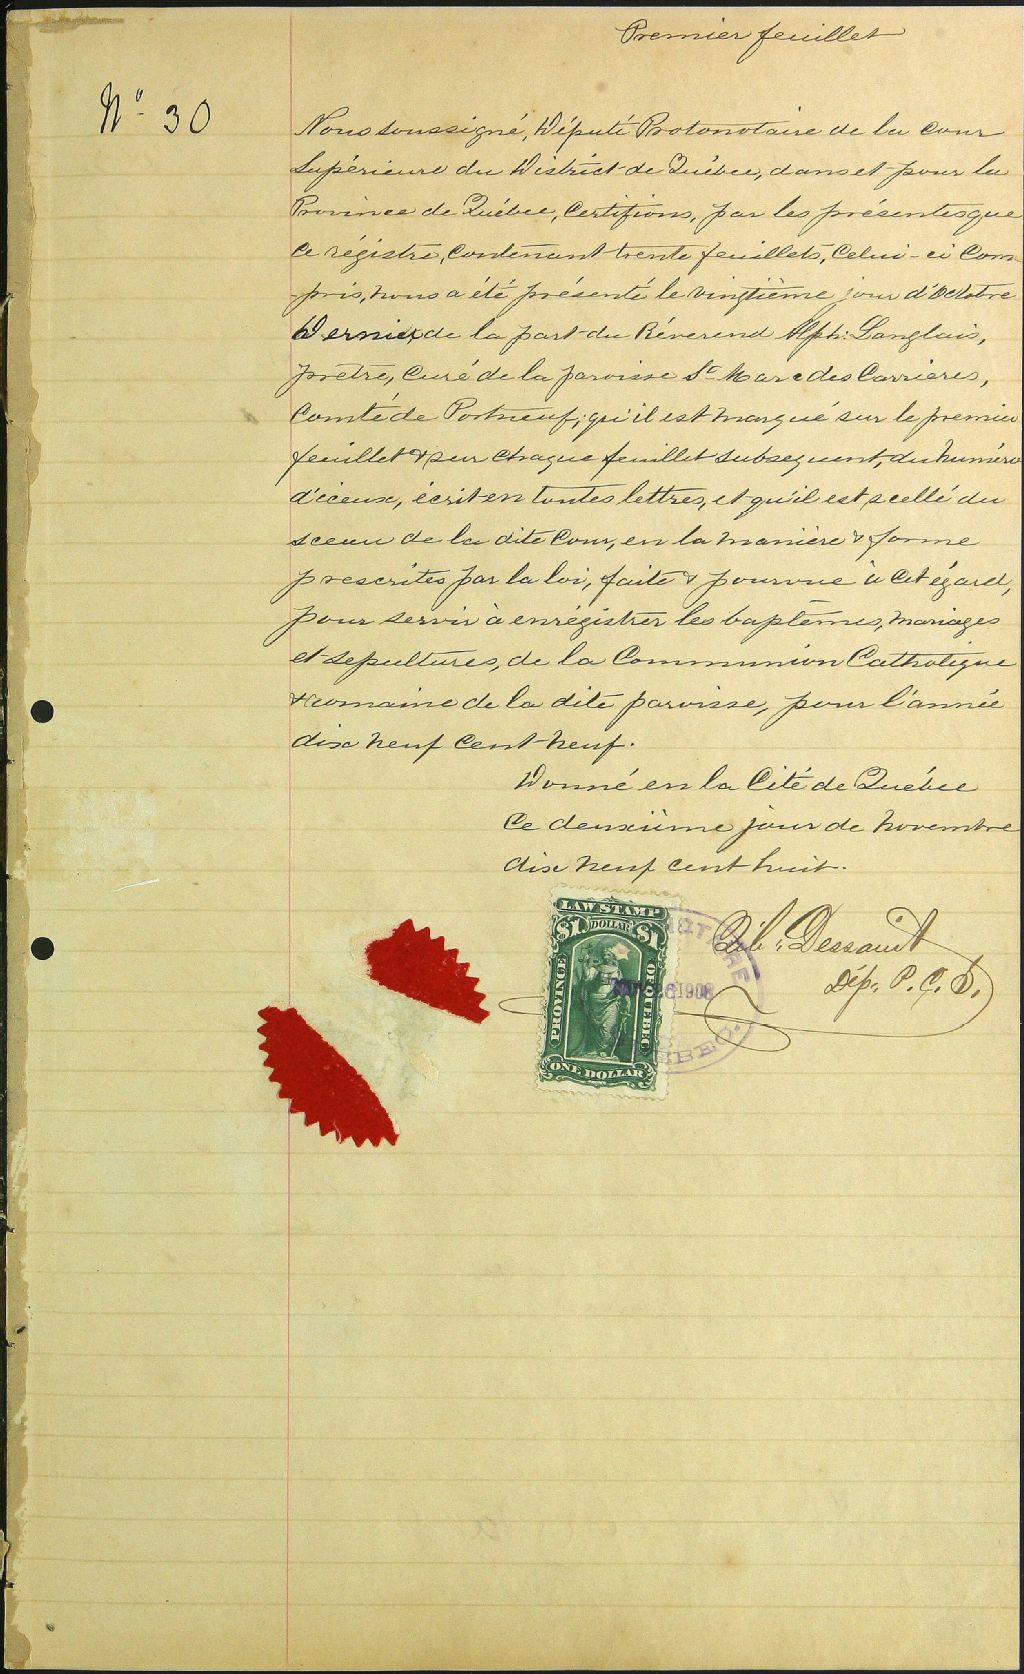 Premier feuillet
No 30
Nous soussigné, Député Protonotaire de la cour
Supérieure du District de Québec, dans et pour la
Province de Québec, certifions, par les présentes que
ce régistre, contenant trente feuillets, celui-ci com
pris, nous a été présenté le vingtième jour d'Octobre
Dernier, de la part du Révérend Alph: Langlais,
prêtre, curé de la paroisse St Marc des Carrières,
Comté de Portneuf; qu'il est marqué sur le premier
feuillet & sur chaque feuillet subsequent, du numéro
d'iceux, écrit en toutes lettres, et qu'il est scellé du
sceau de la dite Cour, en la manière & forme
prescrites par la loi, faite & pourvue à cet égard,
pour servir à enrégistrer les baptêmes, mariages
et sepultures, de la Communion Catholique
& romaine de la dite paroisse, pour l'année
dix neuf cent neuf.
Donné en la Cité de Québec
Ce deuxième jour de Novembre
dix neuf cent huit.
LAW STAMP
$1 DOLLAR $1
PROVINCE OF QUEBEC
ONE DOLLAR
1908
Dessault
Dép. P. C. S.